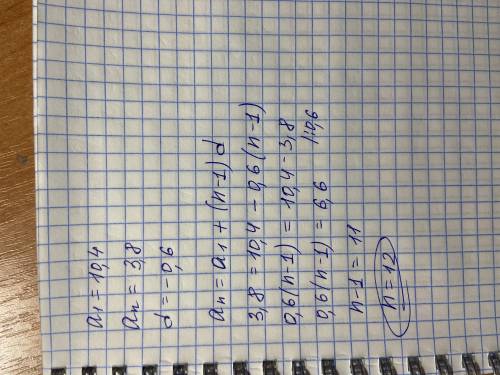 a1 = 10,4
an = 3,8
d = -0,6
an = a1 + (n-1) d
3,8 = 10,4 - 0,6 (n-1)
0,6(n-1) = 10,4 - 3,8
0,6(n-1) = 6,6 |:0,6
n-1 = 11
n = 12